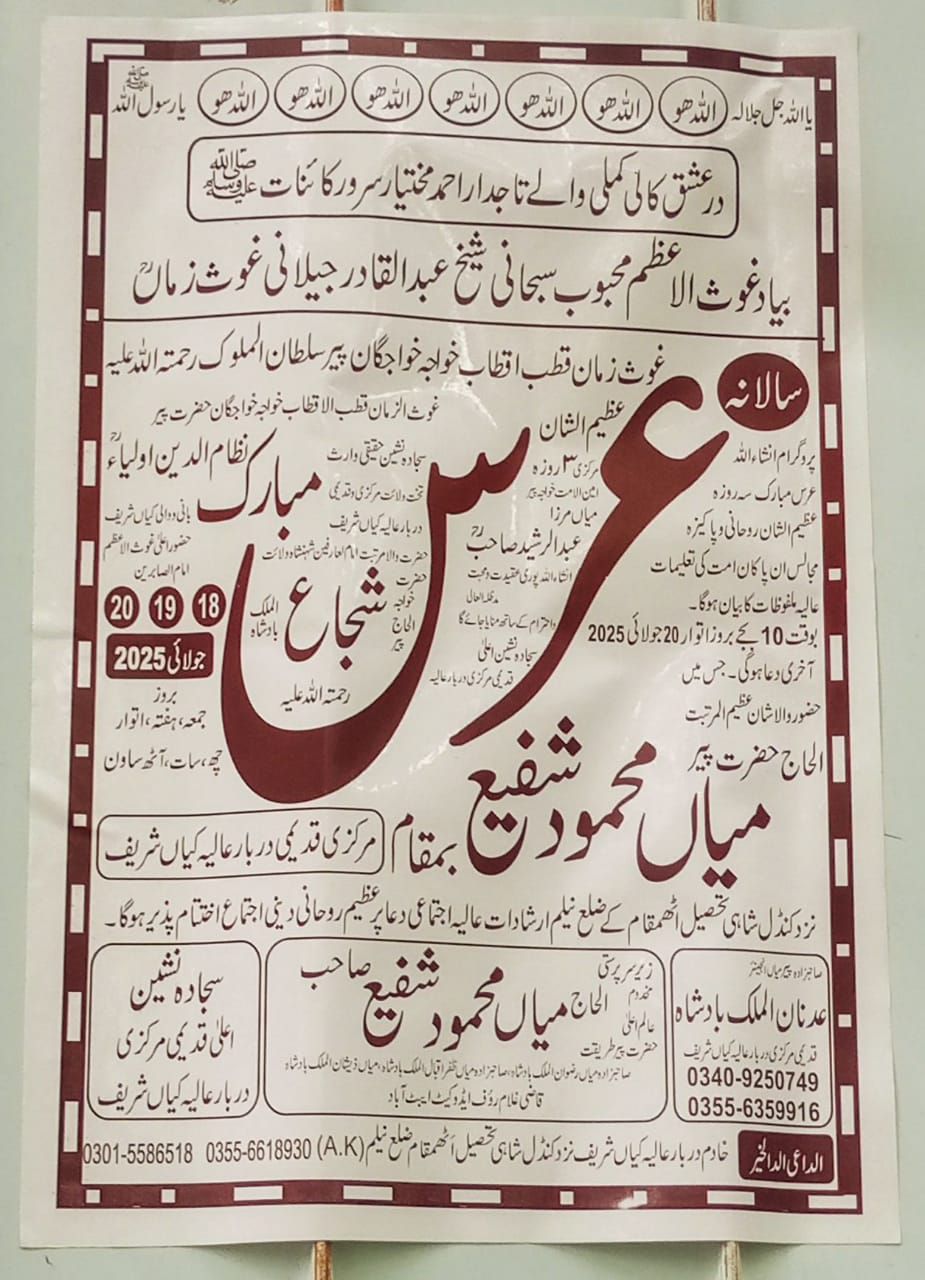 یا اللہ جل جلالہ اللہ ھو اللہ ھو اللہ ھو اللہ ھو اللہ ھو اللہ ھو اللہ ھو یا رسول اللہ ﷺ
در عشق کالی کملی والے تاجدار احمد مختیار سرور کائنات ﷺ
بیاد غوث الاعظم محبوب سبحانی شیخ عبدالقادر جیلانی غوث زماںؒ
غوث زمان قطب اقطاب خواجہ خواجگان پیر سلطان الملوک رحمتہ اللہ علیہ
سالانہ
عرس
مبارک
غوث الزمان قطب الاقطاب خواجہ خواجگان حضرت پیر
نظام الدین اولیاءؒ
بانی دوالی کیاں شریف
حضور اعلیٰ غوث الاعظم
امام الصابرین
سجادہ نشین حقیقی وارث
تخت ولائت مرکزی و قدیمی
دربار عالیہ کیاں شریف
حضرت والا مرتبت امام العارفین شہنشاہ ولائت
حضرت
خواجہ
الحاج
پیر
شجاع
الملک
بادشاہ
رحمتہ اللہ علیہ
عظیم الشان
مرکزی ۳ روزہ
امین الامت خواجہ پیر
میاں مرزا
عبدالرشید صاحبؒ
انشاء اللہ پوری عقیدت و محبت
مدظلہ العالی
واحترام کے ساتھ منایا جائے گا
سجادہ نشین اعلیٰ
قدیمی مرکزی دربار عالیہ
پروگرام انشاء اللہ
عرس مبارک سہ روزہ
عظیم الشان روحانی و پاکیزہ
مجالس ان پاکان امت کی تعلیمات
عالیہ ملفوظات کا بیان ہوگا۔
بوقت 10 بجے بروز اتوار 20 جولائی 2025
آخری دعا ہوگی۔ جس میں
حضور والا شان عظیم المرتبت
الحاج حضرت پیر
میاں محمود شفیع
18 19 20
جولائی 2025
بروز
جمعہ، ہفتہ، اتوار
چھ، سات، آٹھ ساون
بمقام مرکزی قدیمی دربار عالیہ کیاں شریف
نزد کنڈل شاہی تحصیل اٹھمقام کے ضلع نیلم ارشادات عالیہ اجتماعی دعا پر عظیم روحانی دینی اجتماع اختتام پذیر ہوگا۔
صاحبزادہ پیر میاں انجینئر
عدنان الملک بادشاہ
قدیمی مرکزی دربار عالیہ کیاں شریف
0340-9250749
0355-6359916
زیر سرپرستی
مخدوم
عالم اعلیٰ
حضرت پیر طریقت
الحاج میاں محمود شفیع صاحب
صاحبزادہ میاں رضوان الملک بادشاہ، صاحبزادہ میاں ظفر اقبال الملک بادشاہ، میاں ذیشان الملک بادشاہ
قاضی غلام رؤف ایڈووکیٹ ایبٹ آباد
سجادہ نشین
اعلیٰ قدیمی مرکزی
دربار عالیہ کیاں شریف
الداعی الدالخیر
خادم دربار عالیہ کیاں شریف نزد کنڈل شاہی تحصیل اٹھمقام ضلع نیلم (A.K) 0355-6618930 0301-5586518